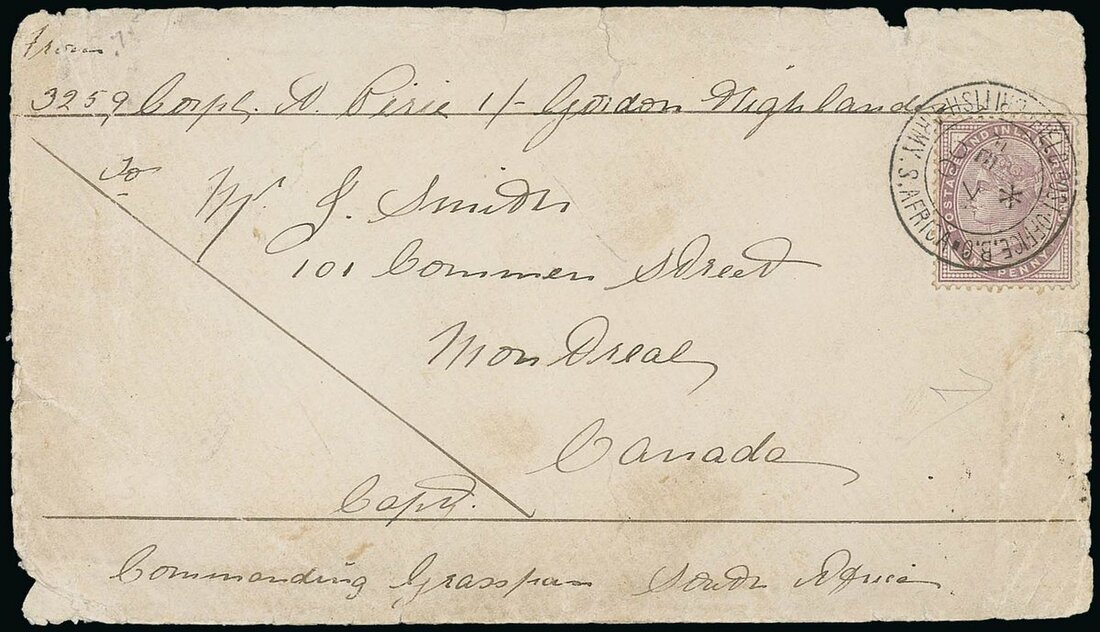 From
3259 Corpl. A. Pirie 1/- Gordon Highlanders
To
Mr. J. Smith
101 Common Street
Montreal
Canada
Capt.
Commanding Graspan South Africa
FIELD POST OFFICE. B.O
BRITISH ARMY. S. AFRICA
POSTAGE AND INLAND REVENUE
ONE PENNY